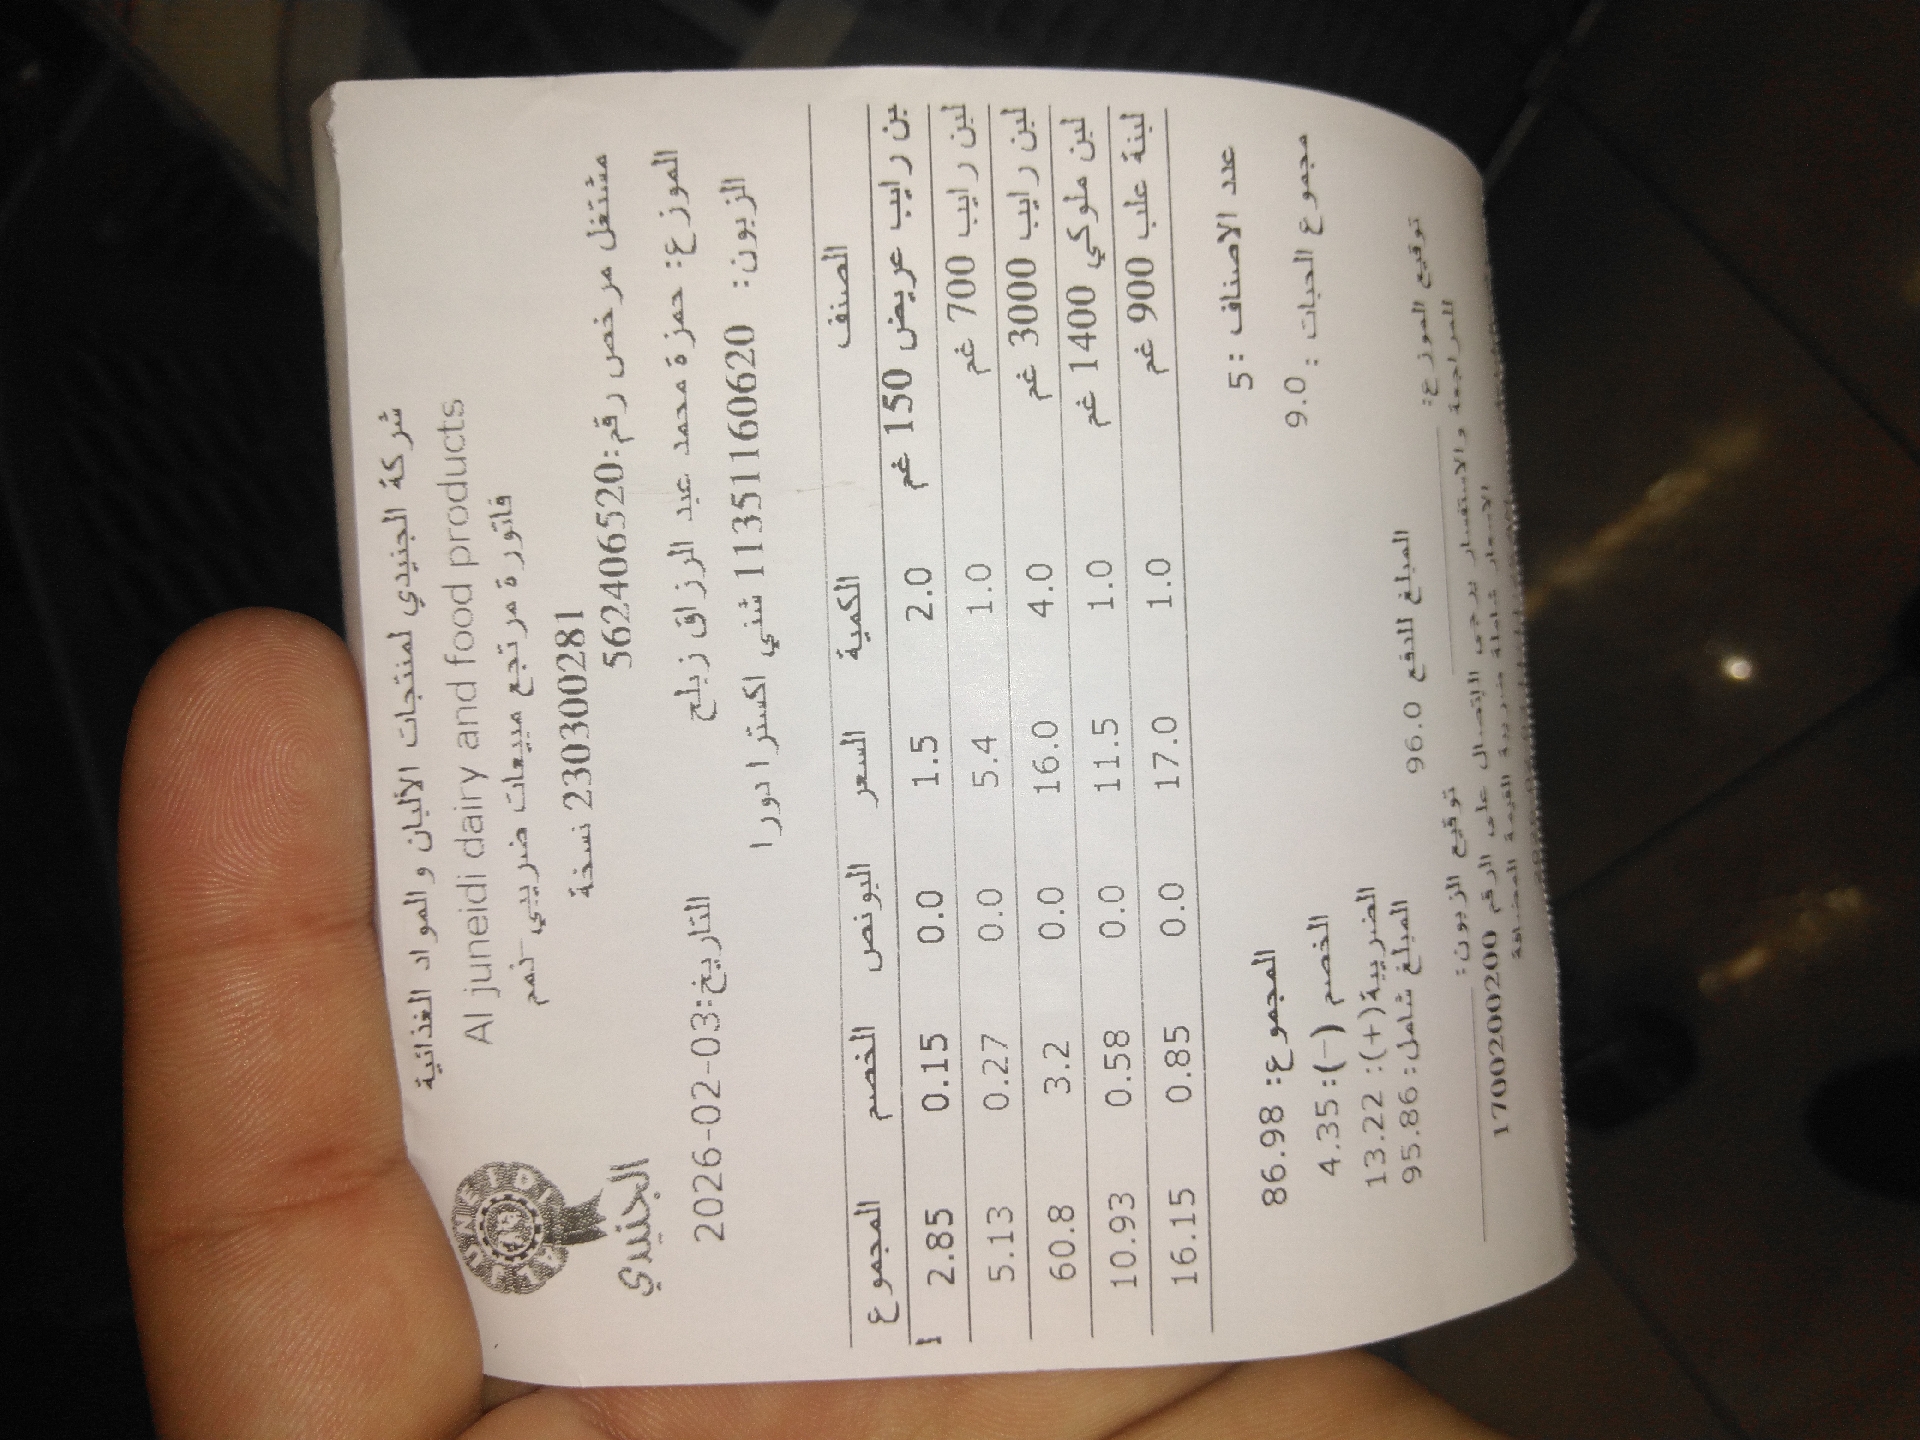 شركة الجنيدي لمنتجات الألبان والمواد الغذائية
Al juneidi dairy and food products
فاتورة مرتجع مبيعات ضريبي -ذمم
230300281 نسخة
الجنيدي
مشتغل مرخص رقم:562406520
الموزع: حمزة محمد عبد الرزاق زبلح
التاريخ:2026-02-03
الزبون: 11351160620 شني اكسترا دورا
الصنف الكمية السعر البونص الخصم المجموع
بن رايب عريض 150 غم 2.0 1.5 0.0 0.15 2.85
لبن رايب 700 غم 1.0 5.4 0.0 0.27 5.13
لبن رايب 3000 غم 4.0 16.0 0.0 3.2 60.8
لبن ملوكي 1400 غم 1.0 11.5 0.0 0.58 10.93
لبنة علب 900 غم 1.0 17.0 0.0 0.85 16.15
عدد الاصناف :5
المجموع: 86.98
مجموع الحبات : 9.0
الخصم (-):4.35
الضريبة(+): 13.22
المبلغ شامل: 95.86
المبلغ للدفع 96.0
توقيع الموزع:
توقيع الزبون:
للمراجعة والاستفسار يرجى الإتصال على الرقم 1700200200
الاسعار شاملة ضريبة القيمة المضافة